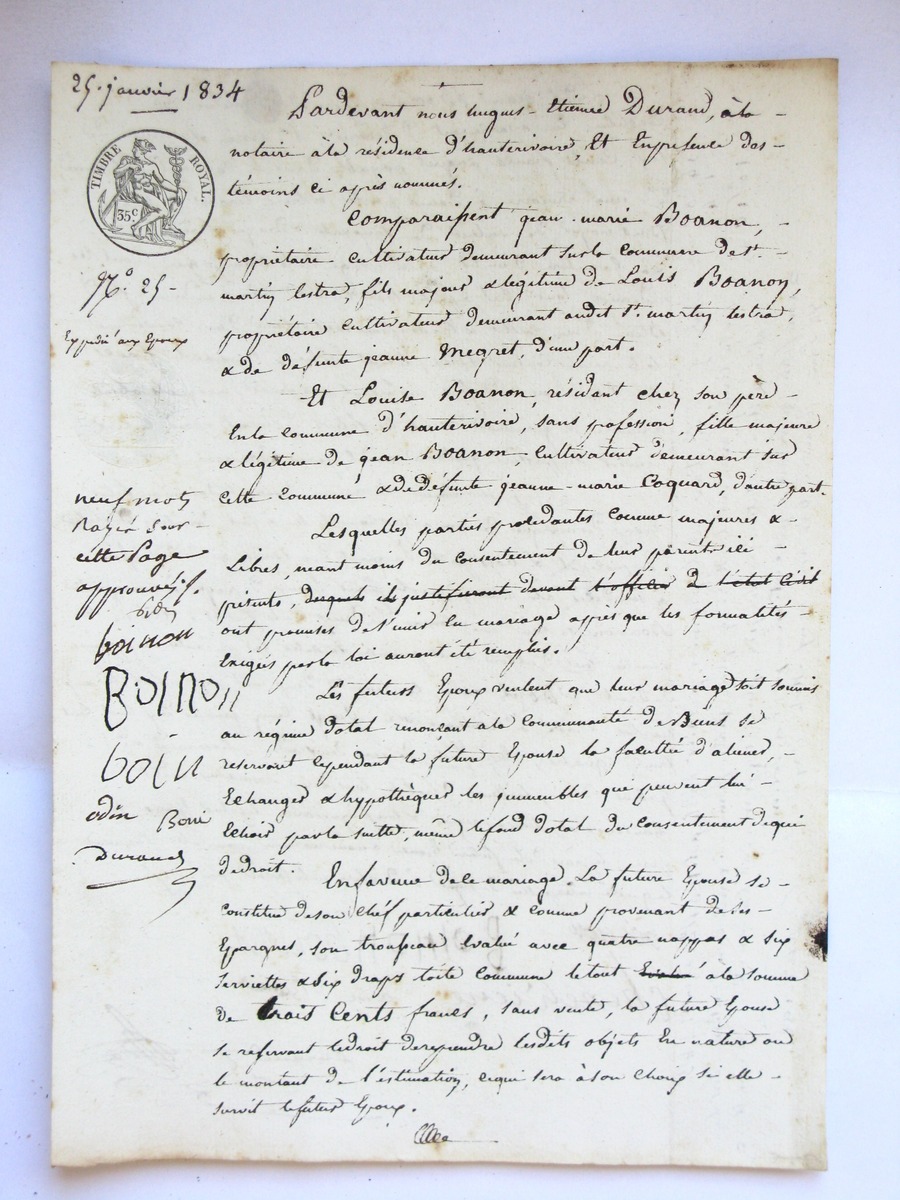 25. janvier 1834
TIMBRE ROYAL.
35c
No. 25 -
Expédié aux Epoux
Pardevant nous hugues - Etienne Durand, à la
notaire à la résidence d'hauterivoire, Et En présence des -
témoins ci après nommés.
Comparaissent jean - marie Boanon, -
propriétaire cultivateur demeurant sur la commune de st. -
martin lestra, fils majeur & légitime de Louis Boanon,
propriétaire cultivateur demeurant audit st. martin lestra,
& de défunte jeanne Megret, d'une part.
Et Louise Boanon, résidant chez son père -
En la commune d'hauterivoire, sans profession, fille majeure
& légitime de jean Boanon, cultivateur demeurant sur
cette commune & de défunte jeanne - marie Coquard, d'autre part.
Lesquelles parties procédantes comme majeures & -
Libres, neant moins du consentement de leur parents ici -
présents, desquels ils justifieront devant l'officier d l'état civil
ont promises de s'unir En mariage après que les formalités -
Exigées par la loi auront été remplis.
Les futurs Epoux veulent que leur mariage soit soumis
au régime dotal renonçant à la Communauté de Biens se
reservant cependant la future Epouse la faculté d'aliener, -
Echanger & hypothèquer les immeubles que peuvent lui -
Echoir par la suitte, même le fond dotal du consentement de qui
de droit.
En faveur de ce mariage. La future Epouse se -
Constitue de son chef particulier & comme provenant de ses -
Epargnes, son trousseau évalué avec quatre nappes & six
serviettes & six draps toile commune le tout Evalué à la somme
de trois Cents francs, sans vente, la future Epouse
se reservant le droit de reprendre lesdits objets En nature ou
le montant de l'estimation, ce qui sera à son choix si elle -
survit le futur Epoux.
neuf mots
Rayés sur -
cette Page
approuvés
boinon
BOINON
boin
odin Boni
Durand